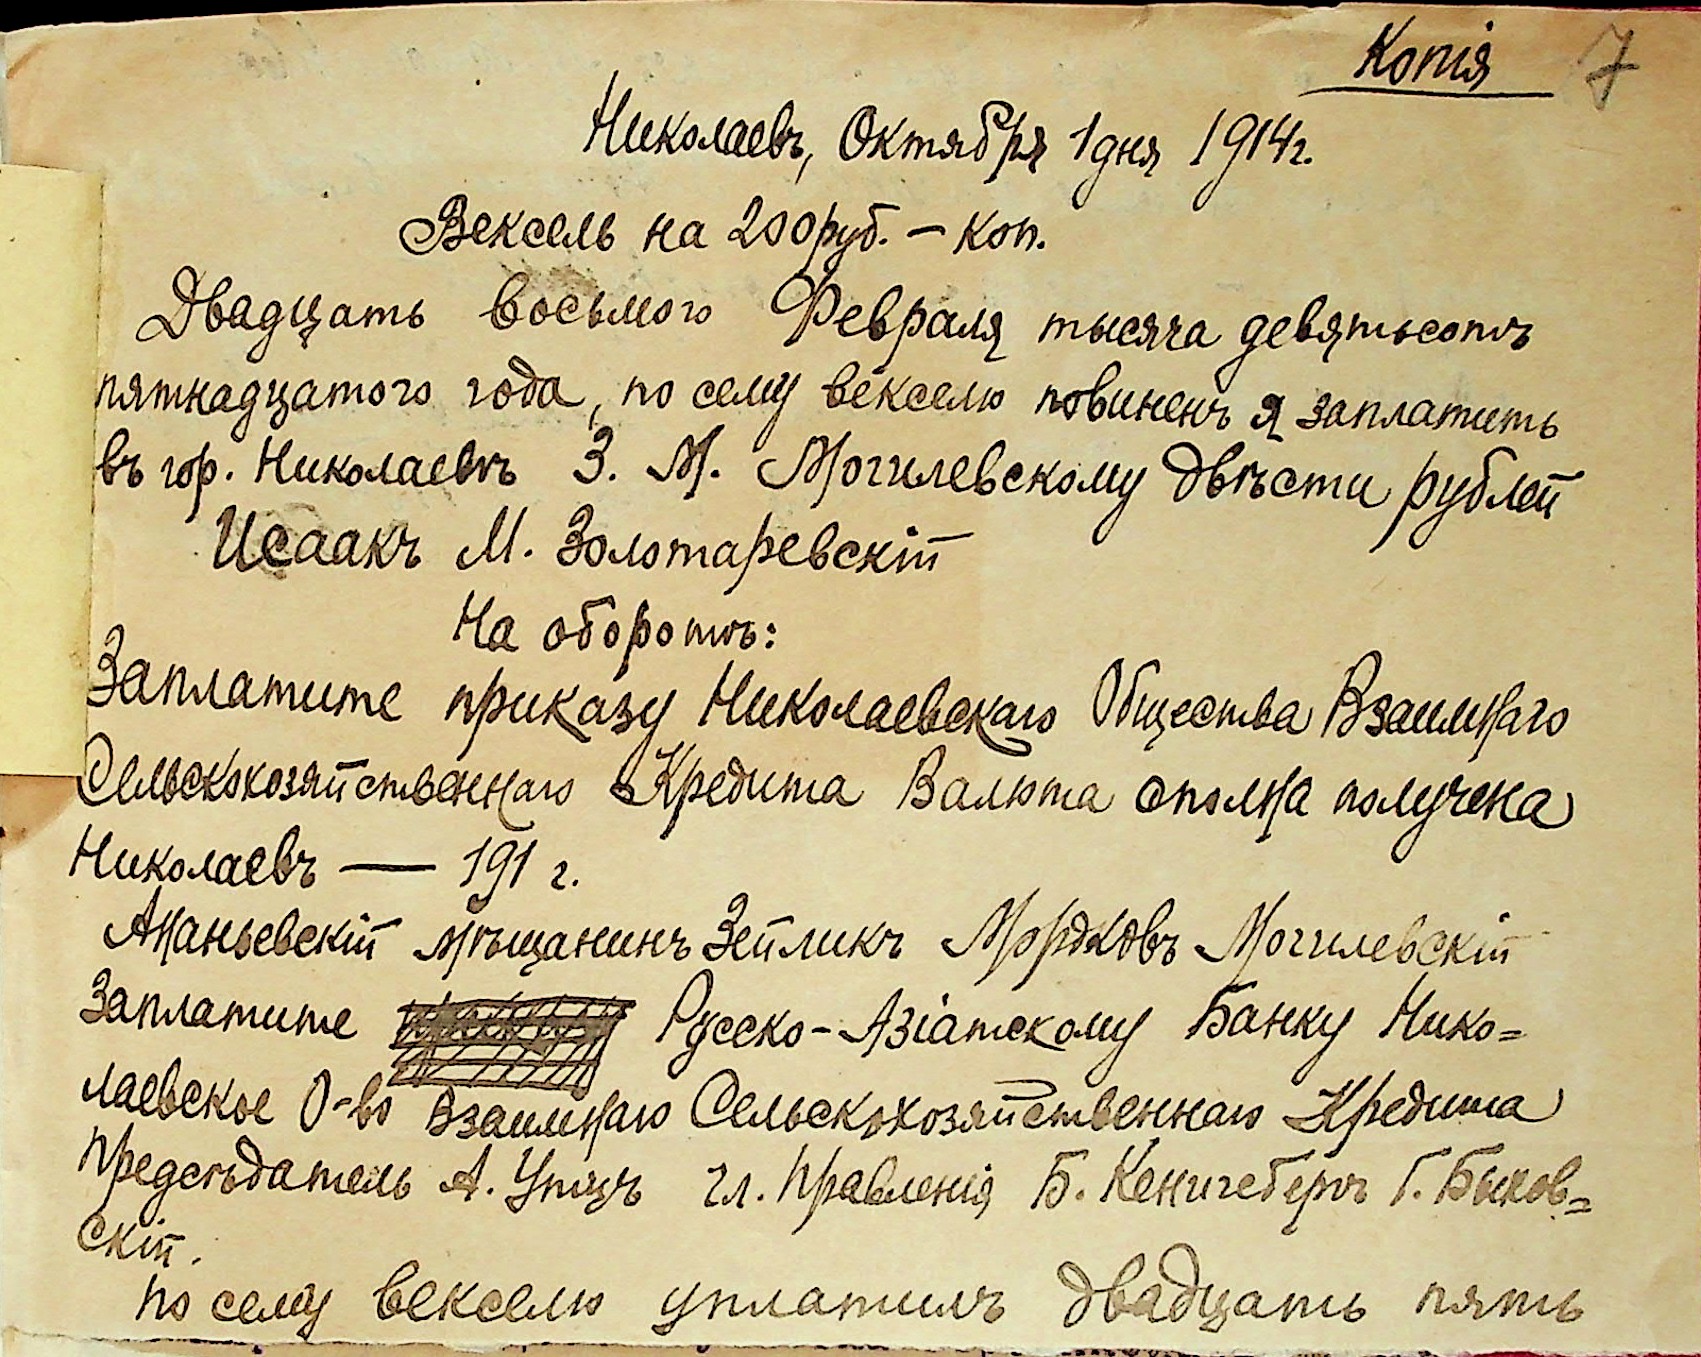 Копія 7
Николаевъ, Октября 1 дня 1914 г.
Вексель на 200 руб. — коп.
Двадцать восьмого Февраля тысяча девятьсотъ
пятнадцатого года, по сему векселю повиненъ я заплатить
въ гор. Николаевѣ З. М. Могилевскому двѣсти рублей
Исаакъ М. Золотаревскій
На оборотѣ:
Заплатите приказу Николаевскаго Общества Взаимнаго
Сельскохозяйственнаго Кредита Валюта сполна получена
Николаевъ — 191 г.
Ананьевскій мѣщанинъ Зейликъ Мордковъ Могилевскій
Заплатите Русско-Азіатскому Банку Нико=
лаевское О-во Взаимнаго Сельскохозяйственнаго Кредита
Предсѣдатель А. Утцъ Чл. Правленія Б. Кенигсбергъ Г. Быков=
скій.
По сему векселю уплатилъ двадцать пять